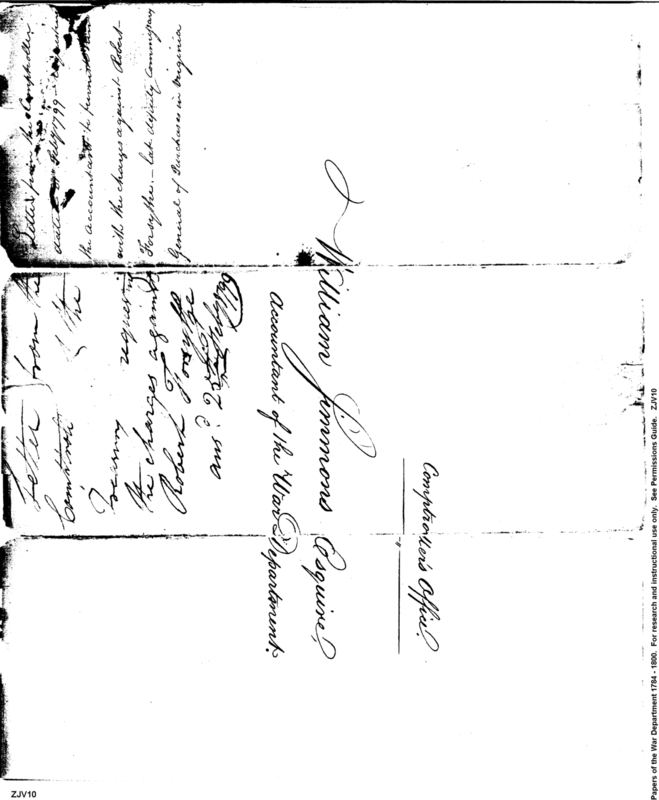 Letter from the Comptroller
dated Feby 1799 requesting
the accountant to furnish him
with the charges against Robert
Forsythe – late deputy Commissary
General of Purchases in Virginia
Letter from the
Comptroller of the
Treasury requesting
the charges against
Robert Forsythe
ans.d 25
Comptroller's Office.
William Simmons Esquire,
Accountant of the War Department.
Papers of the War Department 1784 - 1800. For research and instructional use only. See Permissions Guide. ZJV10
ZJV10